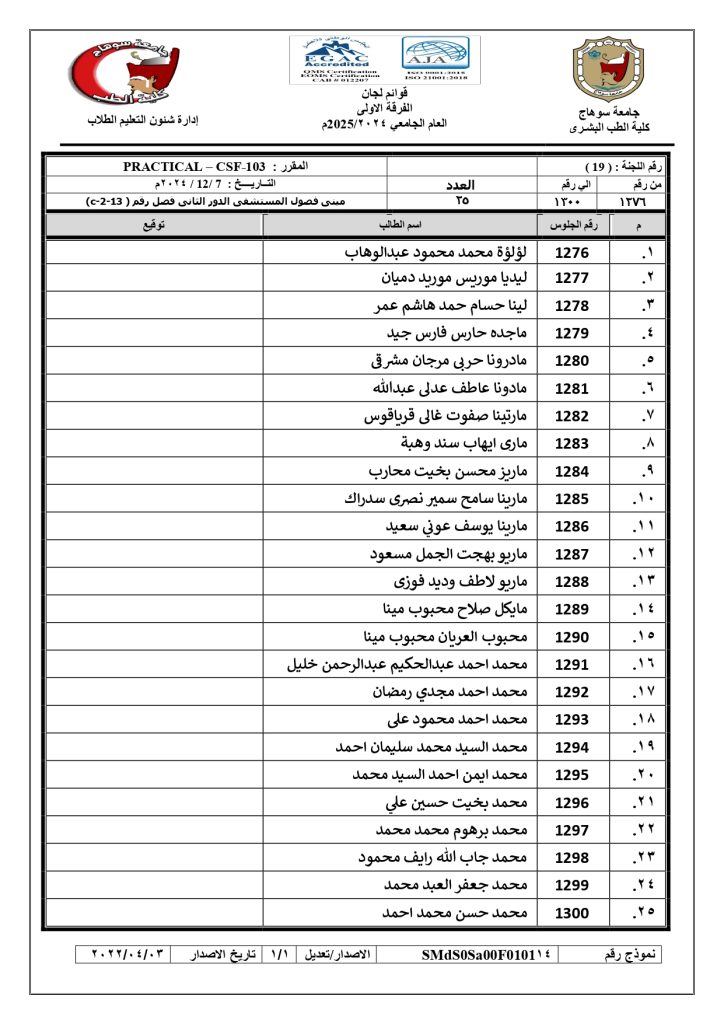 جامعة سوهاج
كلية الطب
EGAC
Accredited
QMS Certification
EOMS Certification
CAB # 012207
AJA
ISO 9001:2015
ISO 21001:2018
جامعة سوهاج
كلية الطب البشرى
قوائم لجان
الفرقة الاولى
العام الجامعي ٢٠٢٤/2025م
إدارة شئون التعليم الطلاب
رقم اللجنة : ( 19 ) المقرر : PRACTICAL – CSF-103
من رقم الي رقم العدد التــاريـــخ : 7 /12/ ٢٠٢٤م
١٢٧٦ ١٣٠٠ ٢٥ مبنى فصول المستشفى الدور الثانى فصل رقم ( c-2-13)
م رقم الجلوس اسم الطالب توقيع
١. 1276 لؤلؤة محمد محمود عبدالوهاب
٢. 1277 ليديا موريس موريد دميان
٣. 1278 لينا حسام حمد هاشم عمر
٤. 1279 ماجده حارس فارس جيد
٥. 1280 مادرونا حربى مرجان مشرقى
٦. 1281 مادونا عاطف عدلى عبدالله
٧. 1282 مارتينا صفوت غالى قرياقوس
٨. 1283 مارى ايهاب سند وهبة
٩. 1284 ماريز محسن بخيت محارب
١٠. 1285 مارينا سامح سمير نصرى سدراك
١١. 1286 مارينا يوسف عوني سعيد
١٢. 1287 ماريو بهجت الجمل مسعود
١٣. 1288 ماريو لاطف وديد فوزى
١٤. 1289 مايكل صلاح محبوب مينا
١٥. 1290 محبوب العريان محبوب مينا
١٦. 1291 محمد احمد عبدالحكيم عبدالرحمن خليل
١٧. 1292 محمد احمد مجدي رمضان
١٨. 1293 محمد احمد محمود على
١٩. 1294 محمد السيد محمد سليمان احمد
٢٠. 1295 محمد ايمن احمد السيد محمد
٢١. 1296 محمد بخيت حسين علي
٢٢. 1297 محمد برهوم محمد محمد
٢٣. 1298 محمد جاب الله رايف محمود
٢٤. 1299 محمد جعفر العبد محمد
٢٥. 1300 محمد حسن محمد احمد
نموذج رقم SMdS0Sa00F0101١٤ الاصدار/تعديل ١/١ تاريخ الاصدار ٢٠٢٢/٠٤/٠٣